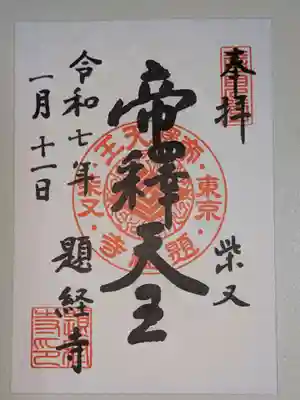 奉拝
柴又
帝釋天王
題経寺
令和七年
一月十一日
東京
柴又